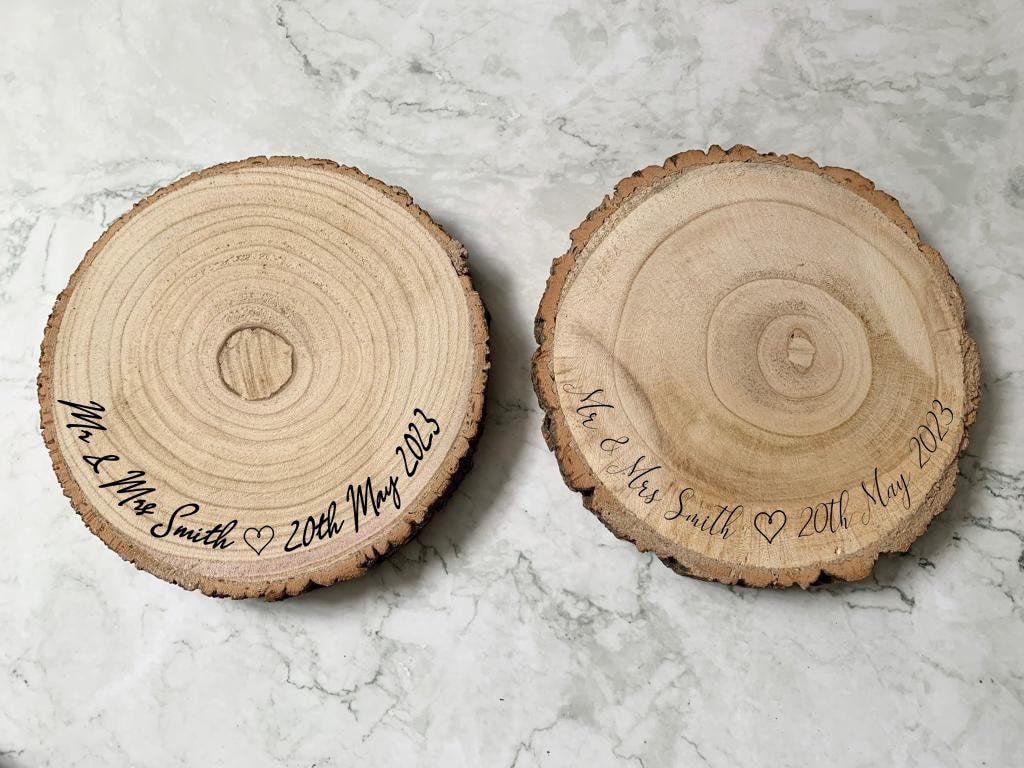 Mr & Mrs Smith ♡ 20th May 2023
Mr & Mrs Smith ♡ 20th May 2023